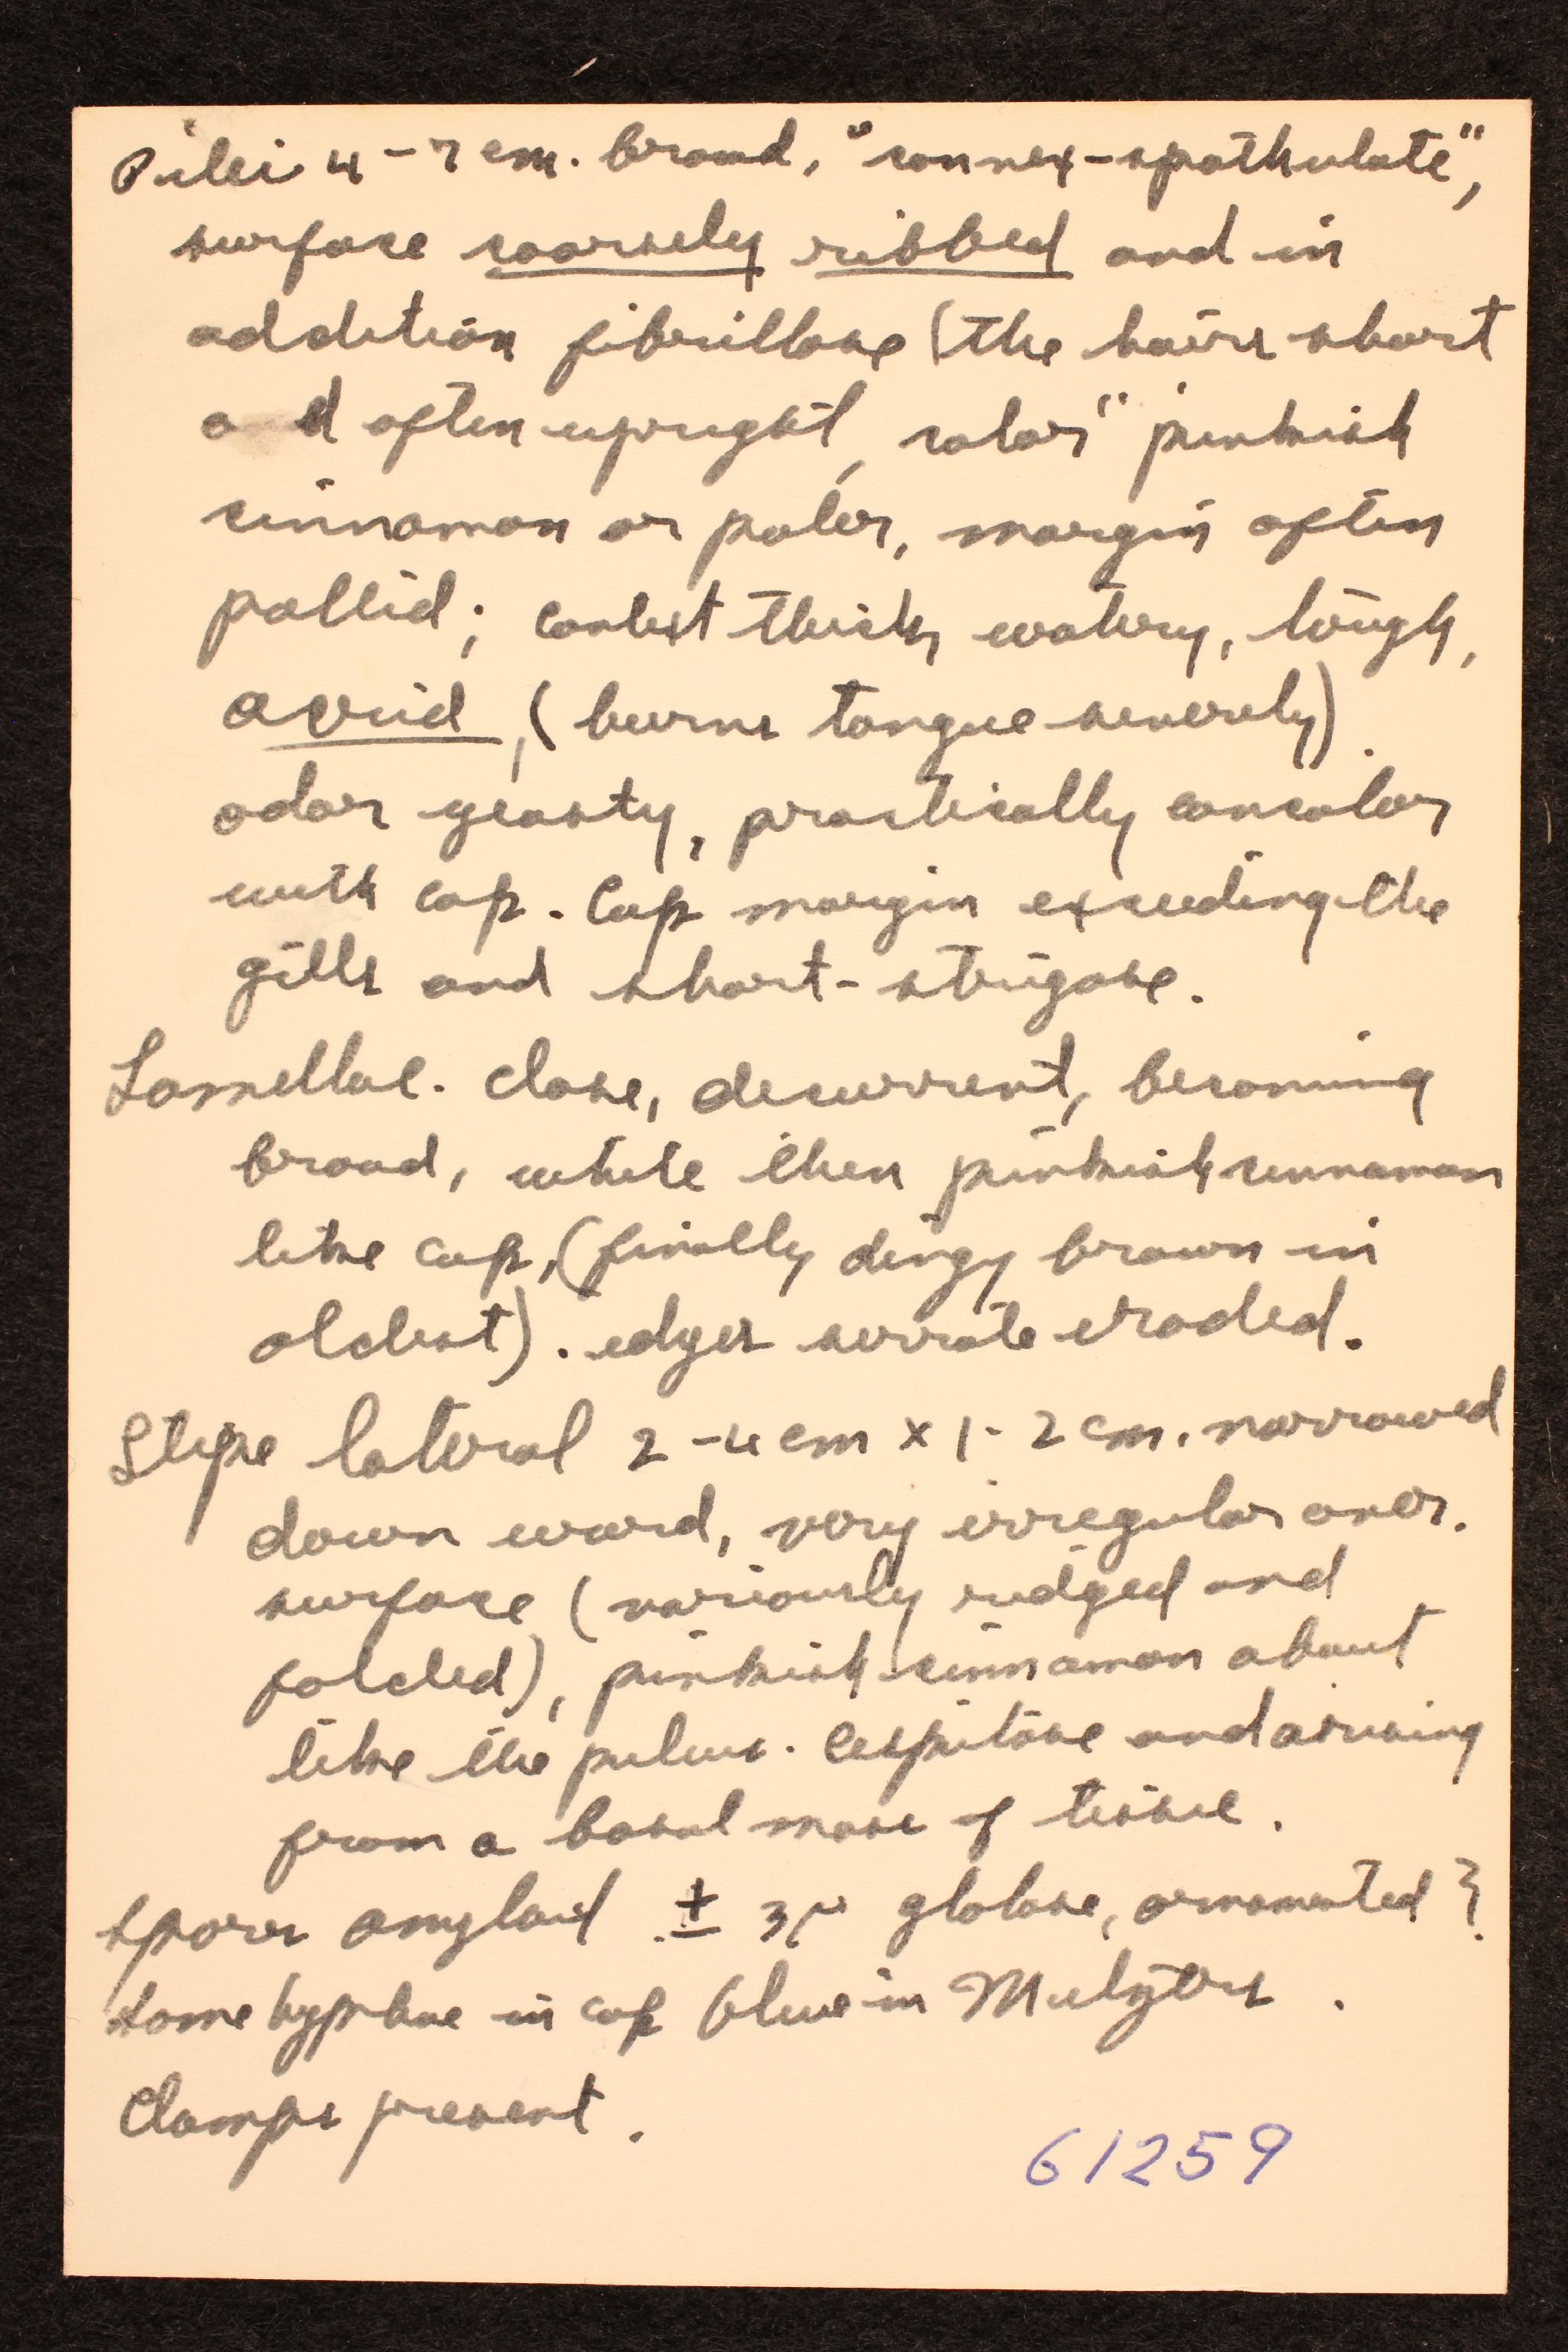 Pilei 4-7 cm. broad, "convex-spathulate",
surface coarsely ribbed and in
addition fibrillose (the hairs short
and often upright, color "pinkish
cinnamon or paler, margin often
pallid; context thick, watery, tough,
acrid, (burns tongue severely).
odor yeasty, practically concolor
with cap. Cap margin exceeding the
gills and short-strigose.
Lamellae. close, decurrent, becoming
broad, white then pinkish cinnamon
like cap, (finally dingy brown in
oldest). edges serrate eroded.
Stipe lateral 2-4 cm x 1-2 cm. narrowed
down ward, very irregular over.
surface (variously ridged and
folded), pinkish cinnamon about
like the pileus. Cespitose and arising
from a basal mass of tissue.
Spores amyloid ± 3μ globose, ornamented?
Some hyphae in cap blue in Melzers.
Clamps present.
61259